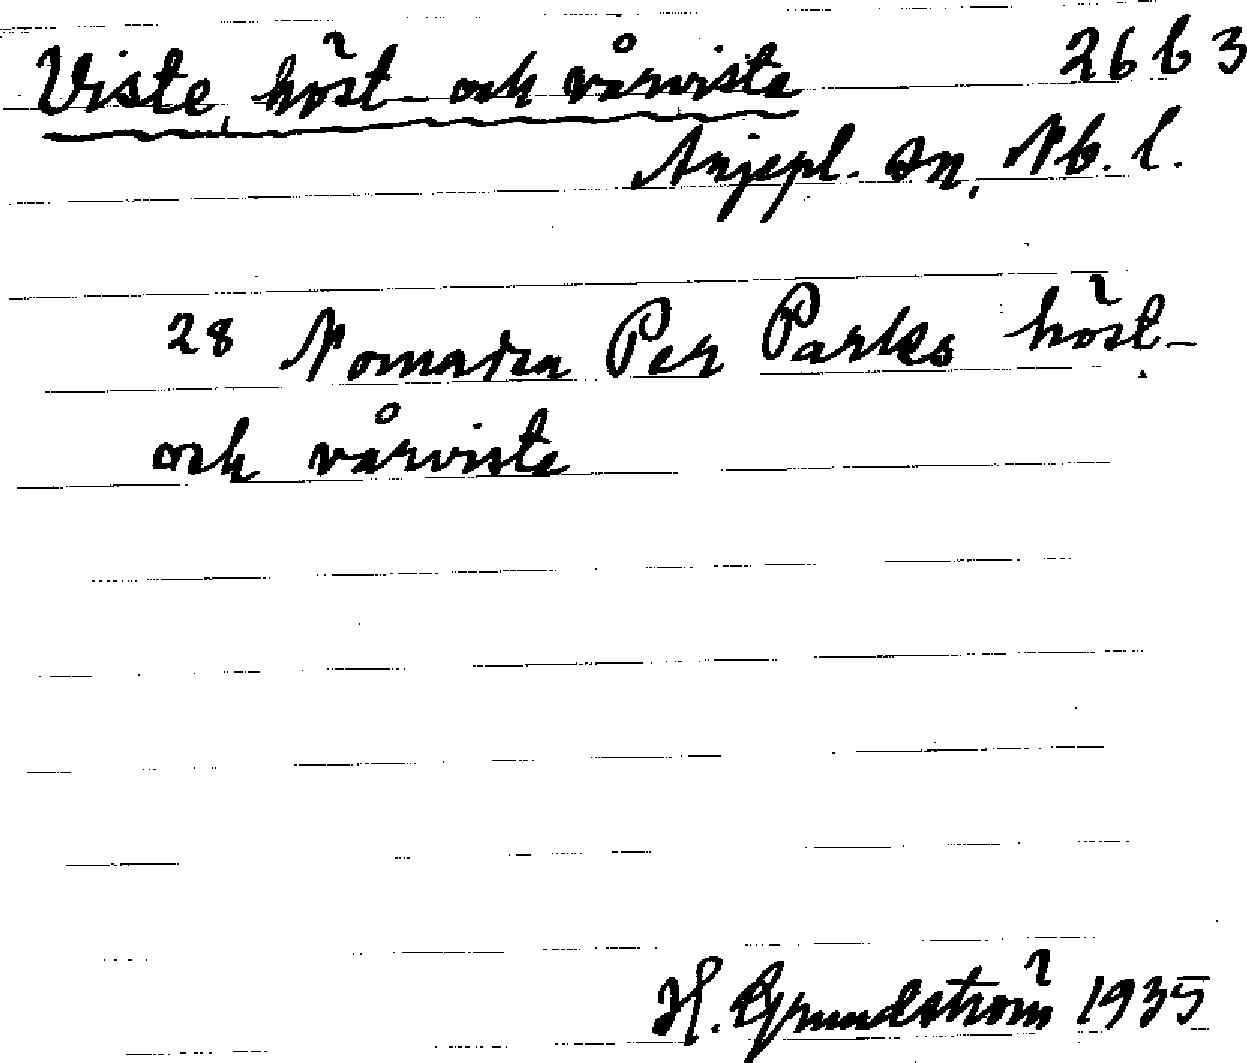 Viste, höst- och vårviste 26 b 3
Arjepl. sn, Nb. l.
28 Nomaden Per Parks höst-
och vårviste
H. Grundström 1935